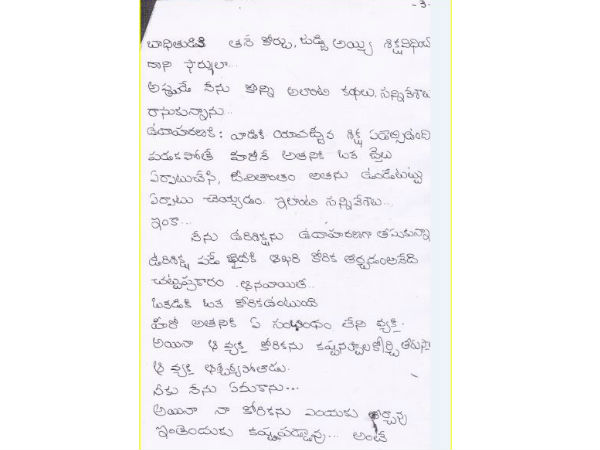 -3-
బాధితుడికి తనే కోర్టు, జడ్జి అయ్యి శిక్షవిధించే
దాని ఫార్ములా...
అప్పుడే నేను కొన్ని అలాంటి కథలు, సన్నివేశాలు
రాసుకున్నాను...
ఉదాహరణకి: వాడికి యావజ్జీవ శిక్ష
పడకపోతే హీరోనే అతనికి ఒక జైలు
ఏర్పాటుచేసి, జీవితాంతం అతను ఉండేటట్టు
ఏర్పాటు చెయ్యడం. ఇలాంటి సన్నివేశాలు...
ఇంకా...
నేను ఉరిశిక్షను ఉదాహరణగా తీసుకున్నా
ఉరిశిక్ష పడే ఖైదీకి ఆఖరి కోరిక తీర్చడంఅనేది
చట్టప్రకారం ఆనవాయితీ..
ఒకడికి ఒక కోరికఉంటుంది
హీరో అతనికి ఏ సంబంధం లేని వ్యక్తి.
అయినా ఆ వ్యక్తి కోరికను
ఆ వ్యక్తి ఆశ్చర్యపోతాడు.
నీకు నేను ఏమికాను...
అయినా నా కోరికను ఎందుకు తీర్చావు
ఇంతెందుకు కష్టపడ్డావు... అంటే